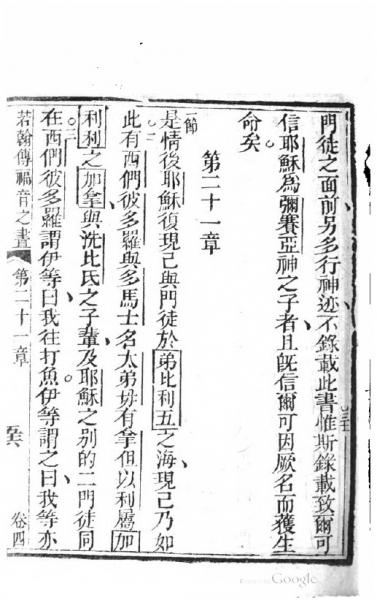 門徒之面前另多行神迹不錄載此書惟斯錄載致爾可
信耶穌為彌賽亞神之子者且既信爾可因厥名而獲生
命矣
第二十一章
一節
是情後耶穌復現己與門徒於弟比利五之海現己乃如
此有西們彼多羅與多馬士名太弟毋有拿但以利屬加
利利之加拿與洗比氏之子輩及耶穌之别的二門徒同
在西們彼多羅謂伊等曰我往打魚伊等謂之曰我等亦
若翰傳福音之書 第二十一章 卷四
Google